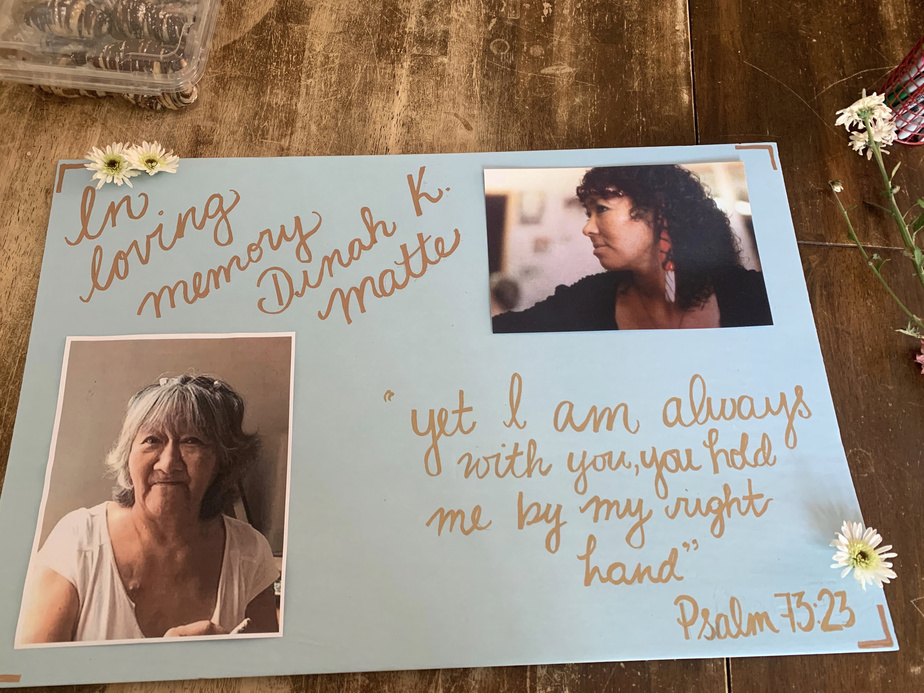 In
loving
memory
Dinah K.
Matte
"yet I am always
with you, you hold
me by my right
hand"
Psalm 73:23